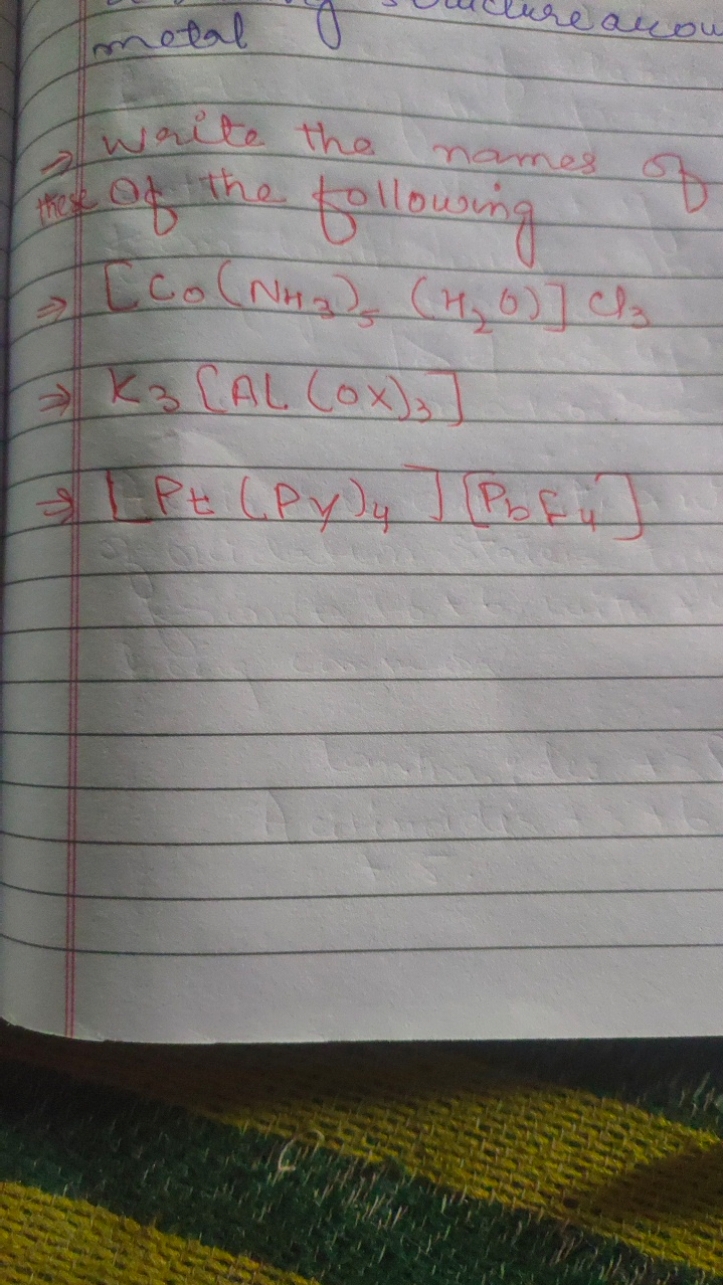 structure
metal
⇒ Write the names of
these of the following
⇒ [Co(NH₃)₅ (H₂O)] Cl₃
⇒ K₃ [AL (OX)₃]
⇒ [Pt (Py)₄] [PbF₄]